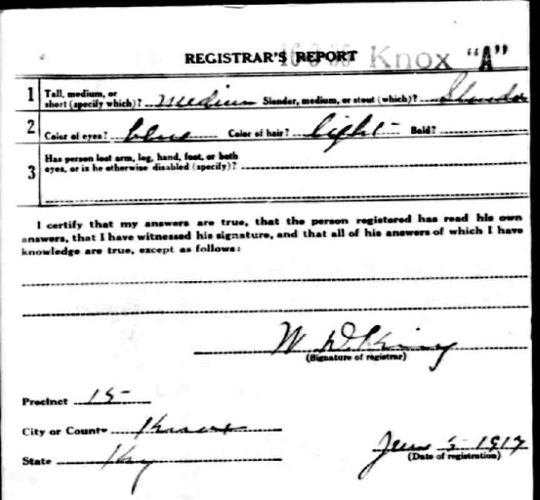 REGISTRAR'S REPORT Knox "A"
1 Tall, medium, or short (specify which)? medium Slender, medium, or stout (which)? Slender
2 Color of eyes? blue Color of hair? light Bald?
3 Has person lost arm, leg, hand, foot, or both
eyes, or is he otherwise disabled (specify)?
I certify that my answers are true, that the person registered has read his own
answers, that I have witnessed his signature, and that all of his answers of which I have
knowledge are true, except as follows:
W. D. King
(Signature of registrar)
Precinct 15
City or County Knox
State Ky
June 5-1917
(Date of registration)